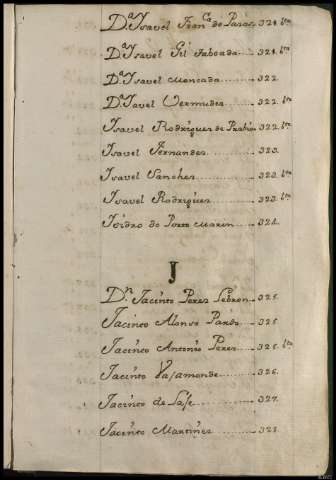 Dª Ysavel Franca de Parias 321. bta
Dª Ysavel Gil Taboada 321. bta
Dª Ysavel Moncada 322.
Dª Ysavel Vermudes 322. bta
Ysavel Rodrigues de Prabio 322. bta
Ysavel Fernandes 323.
Ysavel Sanches 323. bta
Ysavel Rodrigues 323. bta
Ysidro de Porto Marin 324.
J
Dn. Jacinto Peres Lebron 325.
Jacinto Alonso Pardo 325.
Jacinto Antonio Peres 325. bta
Jacinto Vajamonde 326.
Jacinto de Laje 327.
Jacinto Martines 328.